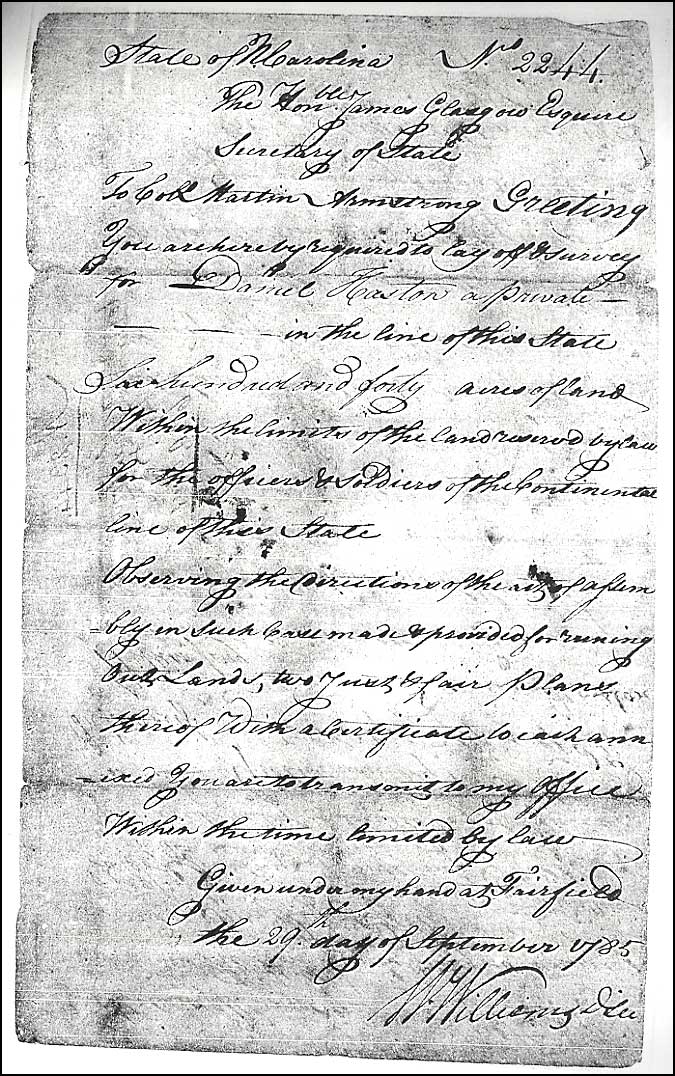 State of N Carolina No 2244.
The Honble James Glasgow Esquire
Secretary of State
To Coll Martin Armstrong Greeting
You are hereby required to lay off & survey
for Daniel Haston a private —
— — — in the line of this State
Six hundred and forty acres of land
Within the limits of the land reserved by law
for the officers & soldiers of the Continental
line of this State
Observing the directions of the act of assem
-bly in such Case made & provided for runing
Out Lands, two Just & fair Plans
thereof With a Certificate to each ann
-exed You are to transmit to my office
Within the time limited by law
Given under my hand at Fairfield
the 29th day of September 1785
W Williams D Sec